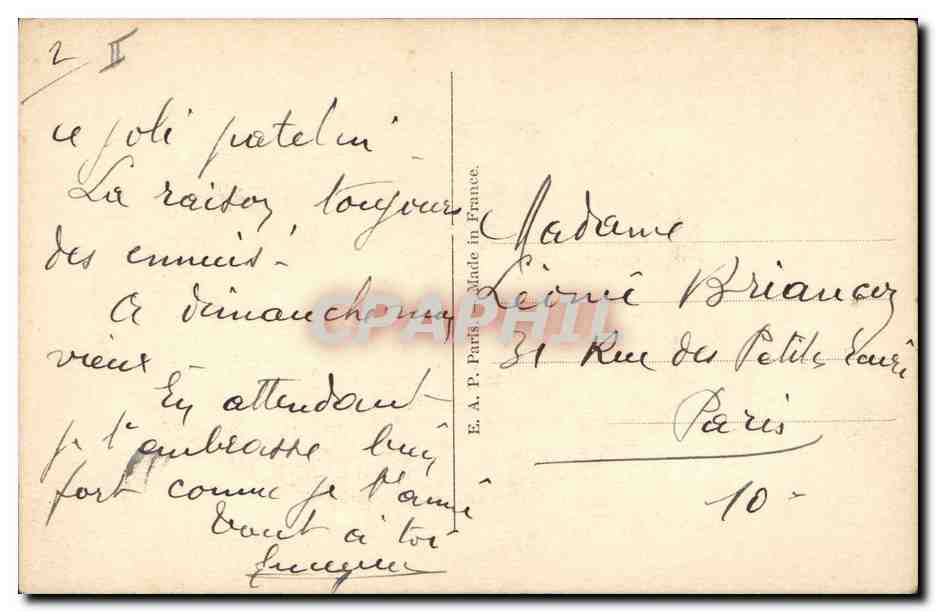 2 II
ce joli patelin
La raison, toujours
des ennuis -
A dimanche mon
vieux
En attendant
je t'embrasse bien
fort comme je t'aime
tout à toi
E. A. P. Paris. Made in France.
Madame
Léonie
31 Rue des Petites Ecuries
Paris
10e
CPAPHIL